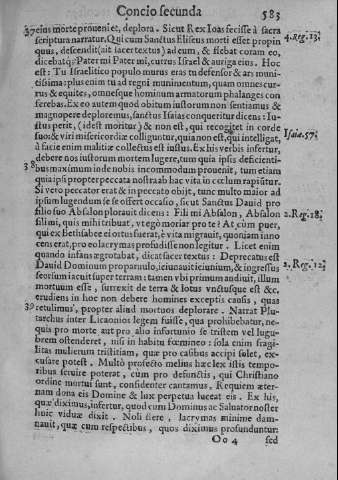 Concio secunda 583
37 eius morte proueni et, deplora. Sicut Rex Ioas fecisse à sacra
scriptura narratur. Qui cum Sanctus Eliseus morti esset propin
quus, descendit (ait sacer textus) ad eum, & flebat coram eo, 4. Reg. 13.
dicebatq; Pater mi Pater mi, currus Israel & auriga eius. Hoc
est: Tu Israelitico populo murus eras tu defensor & ars muni-
tissima: plus enim tu ad regni munimentum, quam omnes cur-
rus & equites, omnesque hominum armatorum phalanges con
ferebas. Ex eo autem quod obitum iustorum non sentiamus &
magnopere deploremus, sanctus Isaias conqueritur dicens: Iu-
stus perit, (id est moritur) & non est, qui recogitet in corde
suo: & viri misericordiæ colliguntur, quia non est, qui intelligat, Isaia. 57.
à facie enim malitiæ collectus est iustus. Ex his verbis infertur,
debere nos iustorum mortem lugere, tum quia ipsis deficienti-
38 bus maximum inde nobis incommodum prouenit, tum etiam
quia ipsi propter peccata nostra ab hac vita in cœlum rapiūtur.
Si vero peccator erat & in peccato obijt, tunc multo maior ad
ipsum lugendum se se offert occasio, sicut Sanctus Dauid pro
filio suo Absalon plorauit dicens: Fili mi Absalon, Absalon 2. Reg. 18.
fili mi, quis mihi tribuat, vt ego moriar pro te? At cùm puer,
qui ex Bethsabee ei ortus fuerat, è vita migrauit, quoniam inno
cens erat, pro eo lacrymas profudisse non legitur. Licet enim
quando infans ægrotabat, dicat sacer textus: Deprecatus est
Dauid Dominum pro paruulo, ieiunauit ieiunium, & ingressus 2. Reg. 12.
seorsum iacuit super terram: tamen vbi primum audiuit, illum
mortuum esse, surrexit de terra & lotus vnctusque est &c.
erudiens in hoc non debere homines exceptis causis, quas
39 retulimus, propter aliud mortuos deplorare. Narrat Plu-
tarchus inter Licaonios legem fuisse, qua prohibebatur, ne-
quis pro morte aut pro alio infortunio se tristem vel lugu-
brem ostenderet, nisi in habitu fœmineo: sola enim fragi-
litas mulierum tristitiam, quæ pro casibus accipi solet, ex-
cusare potest. Multò profecto melius hæc lex istis tempo-
ribus seruire poterat, cum pro defunctis, qui Christiano
ordine mortui sunt, confidenter cantamus, Requiem æter-
nam dona eis Domine & lux perpetua luceat eis. Ex his,
quæ diximus, infertur, quod cum Dominus ac Saluator noster
huic viduæ dixit: Noli flere, lacrymas minime dam-
nauit, quæ cum respectibus, quos diximus profunduntur:
Oo 4 sed